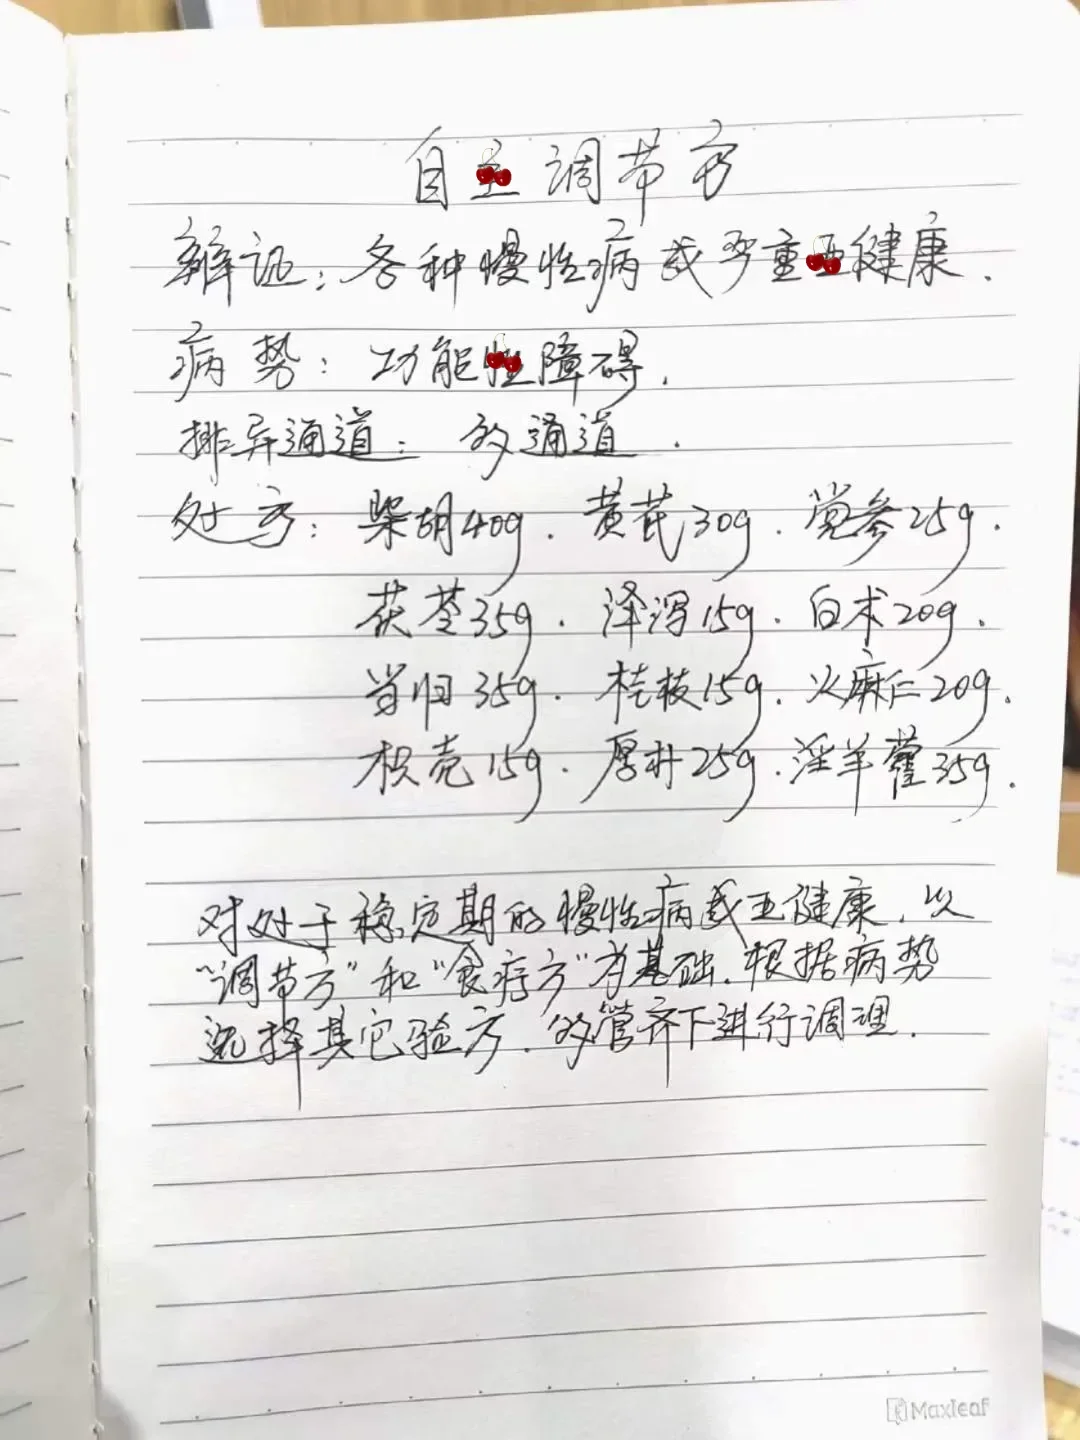 自主调节方
辨证：各种慢性病或严重亚健康.
病势：功能性障碍.
排异通道：多通道.
处方：柴胡40g. 黄芪30g. 党参25g.
茯苓35g. 泽泻15g. 白术20g.
当归35g. 桂枝15g. 火麻仁20g.
枳壳15g. 厚朴25g. 淫羊藿35g.
对处于稳定期的慢性病或亚健康, 以
"调节方"和"食疗方"为基础. 根据病势
选择其它验方. 多管齐下进行调理.
Maxleaf